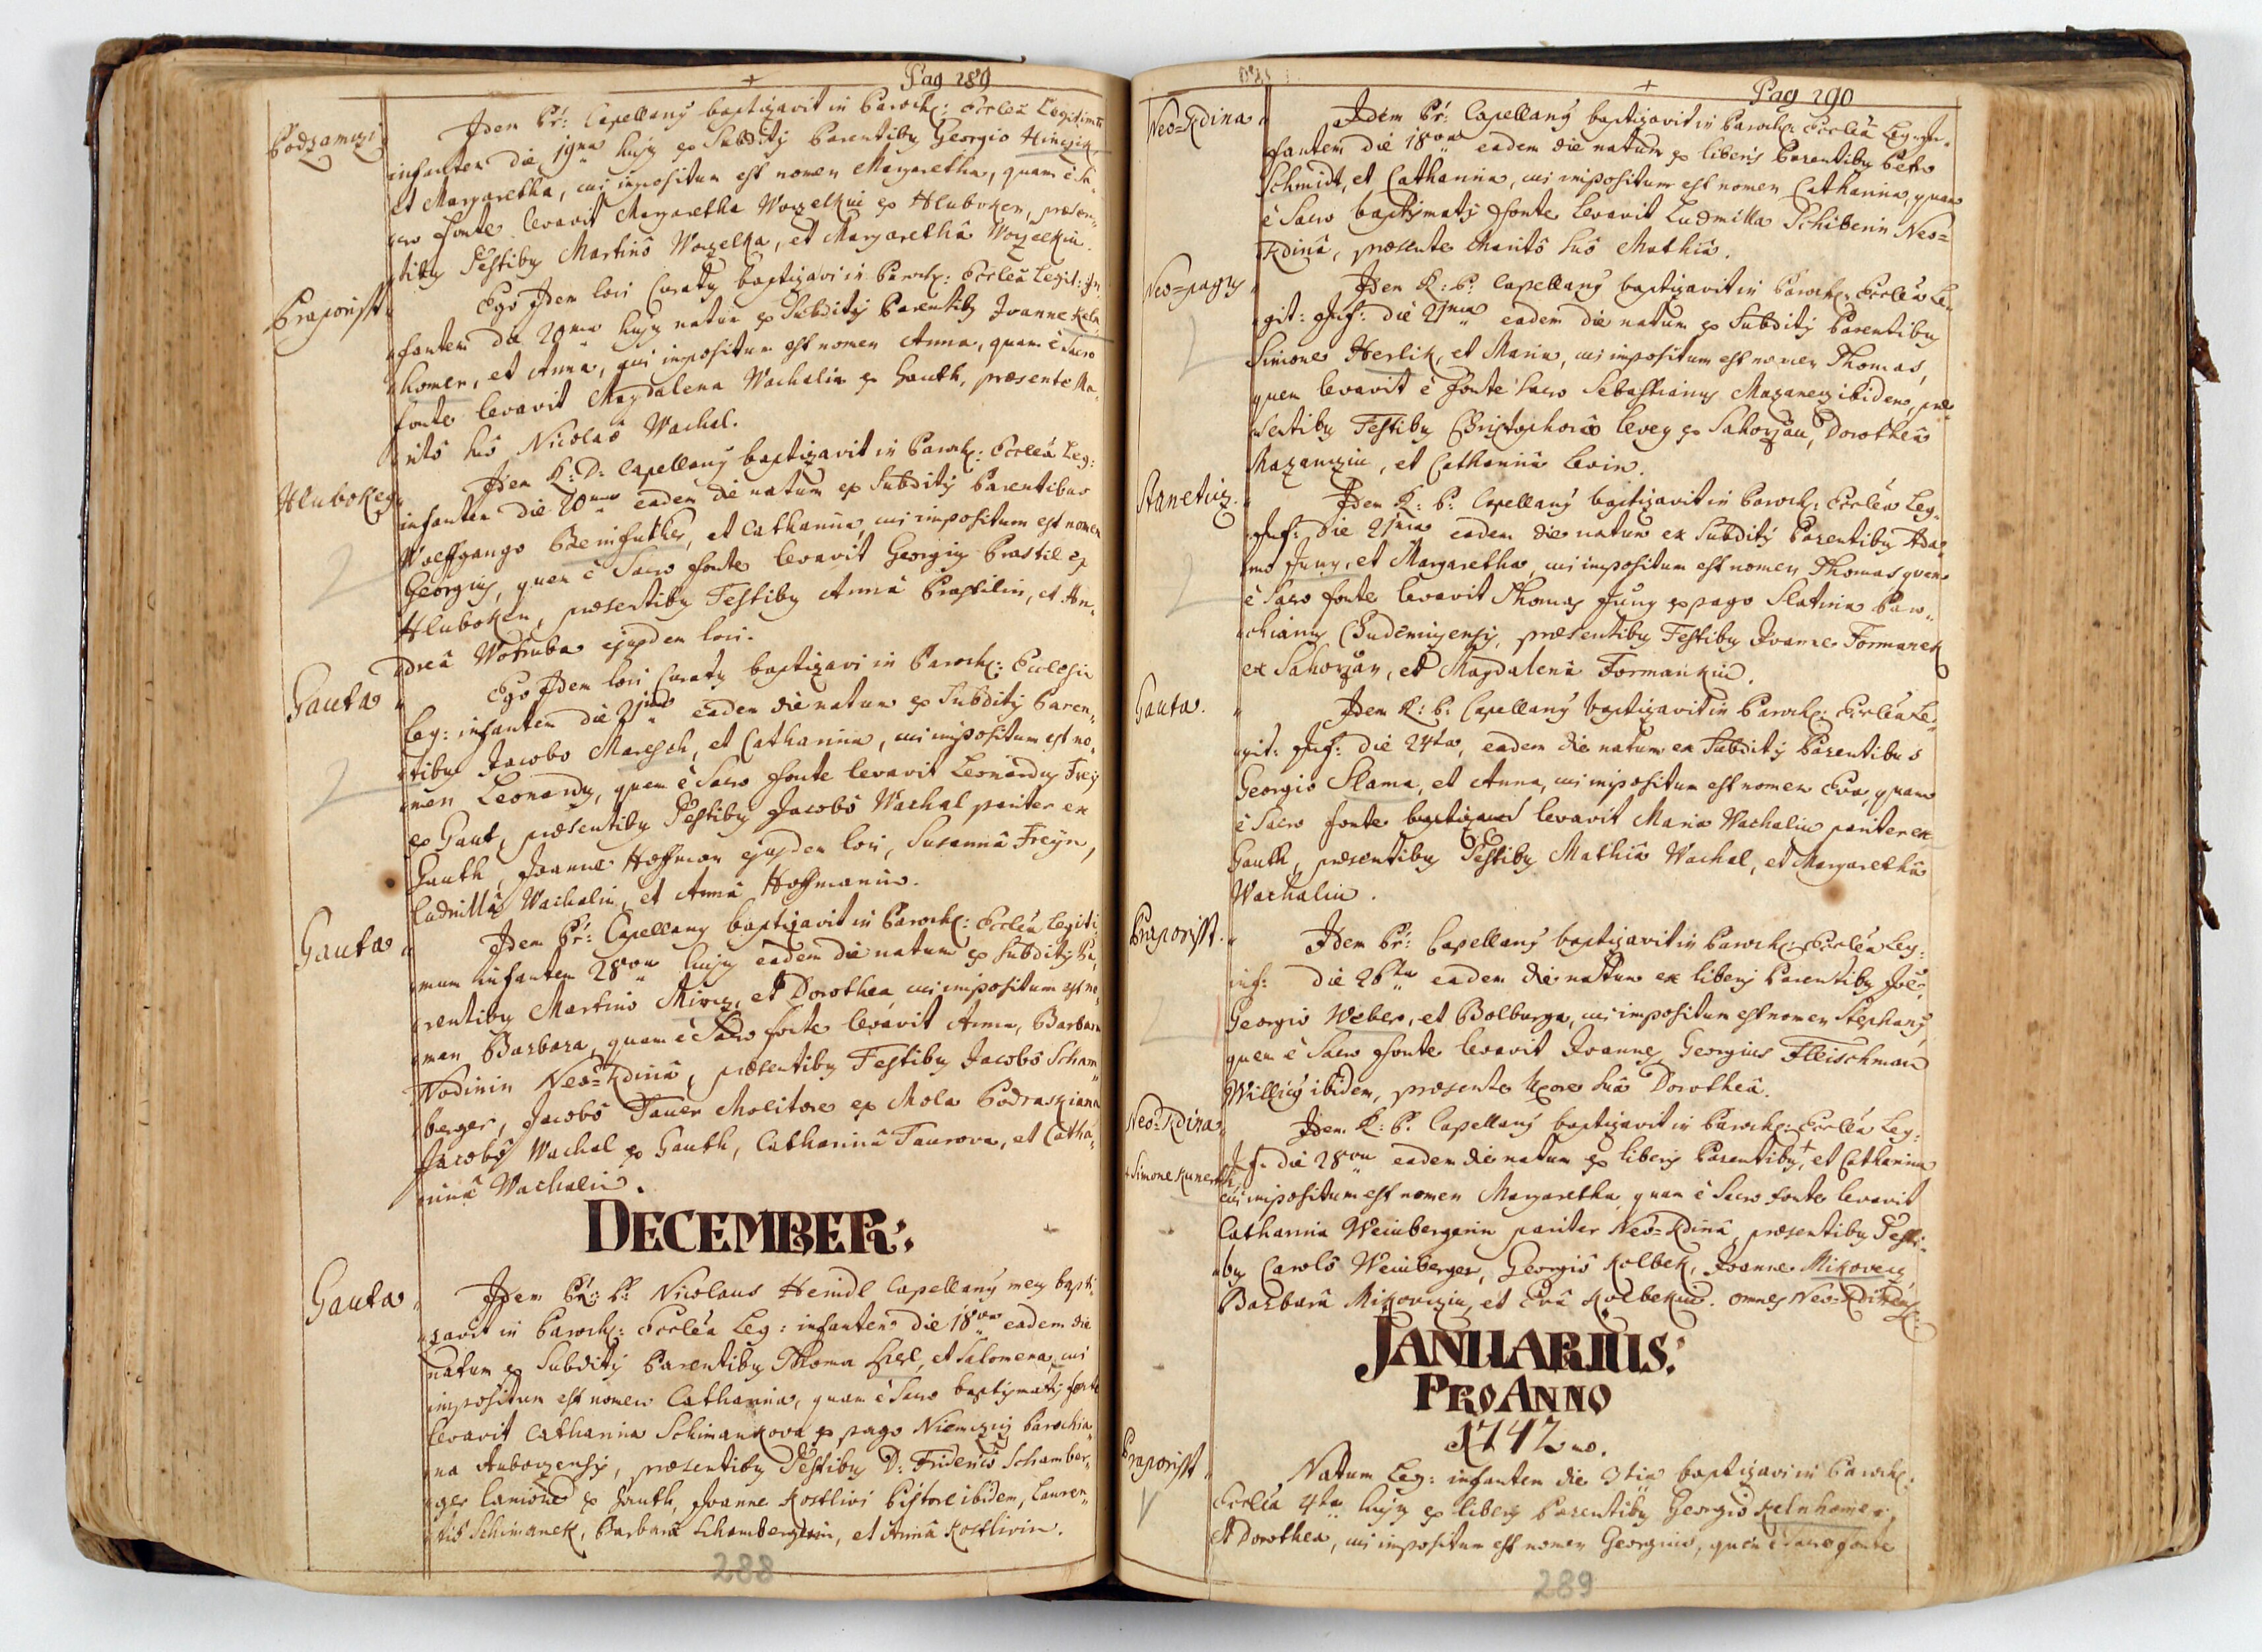 Pag 289
Podzamczj
Idem Pr: Capellanꝰ baptizavit in Paroch: Ecclea Legitimũ
infantem die 19na hujꝰ ex Subditis Parentibꝰ Georgio Hinczik
et Margaretha, cui impositum est nomen Margaretha, quam è Sa„
cro fonte levavit Margaretha Woczelkin ex Hluboken, praesen„
tibꝰ Testibꝰ Martinô Woczelka, et Margarethâ Woczelkin.
Praporisst
Ego Idem loci Curatꝰ baptizavi in Paroch: Ecclea Legit: In„
fantem die 20ma hujꝰ natum ex Subditis Parentibꝰ Joanne Keln„
homer, et Anna, cui impositum est nomen Anna, quam è Sacro
fonte levavit Magdalena Wachalin ex Gauth, praesente Ma„
ritô suô Nicolaô Wachal.
Hlubokeg
Idem R: D: Capellanꝰ baptizavit in Paroch: Ecclea Leg:
infantem die 20ma eadem die natum ex Subditis Parentibus
Wolffgango Beinfutker, et Catharina, cui impositum est nomen
Georgiꝰ, quem è Sacro fonte levavit Georgiꝰ Prastil ex
Hluboken, praesentibꝰ Testibꝰ Annâ Prastilin, et An„
dreâ Wotruba ejusdem loci.
Gauta
Ego Idem loci Curatꝰ baptizavi in Paroch: Ecclesia
Leg: infantem die 21ma eadem die natum ex Subditis Paren„
tibꝰ Jacobo Maresch, et Catharina, cui impositum est no„
men Leonardꝰ, quem è Sacro fonte levavit Leonardꝰ Frey
ex Gaut, praesentibꝰ Testibꝰ Jacobô Wachal pariter ex
Gauth, Joanne Hoffman ejusdem loci, Susannâ Freyn,
Ludmillâ Wachalin, et Annâ Hoffmanin.
Gauta
Idem Pr: Capellanꝰ baptizavit in Paroch: Ecclea Legiti„
mum infantem 28va hujꝰ eadem die natum ex Subditis Pa„
rentibꝰ Martino Mirez, et Dorothea, cui impositum est no„
men Barbara, quam è Sacro fonte levavit Anna Barbara
Wodinin Neo=Kdinâ, praesentibꝰ Testibꝰ Jacobô Scham„
berger, Jacobô Tauer Molitore ex Mola Podraskiana
Jacobô Wachal ex Gauth, Catharinâ Taurova, et Catha„
rinâ Wachalin.
DECEMBER:
Gauta
Idem Pr: P: Nicolaus Heindl Capellanꝰ meꝰ bapti„
zavit in Paroch: Ecclea Leg: infantem die 18va eadem die
natum ex Subditis Parentibꝰ Thoma Hirl, et Salomena, cui
impositum est nomen Catharina, quam è Sacro baptismatis fonte
levavit Catharina Schimankova ex pago Niemczicz Parochia„
na Auborzensis, praesentibꝰ Testibꝰ D: Fridericô Schamber„
ger lanione ex Gauth, Joanne Kostlivi Pistore ibidem, Lauren„
tiô Schimanek, Barbarâ Schambergerin, et Annâ Kostlivin.
288
Pag 290
Neo=Kdina
Idem Pr: Capellanꝰ baptizavit in Paroch: Ecclea Leg: In„
fantem die 18va eadem die natum ex liberis Parentibꝰ Petro
Schmidt, et Catharina, cui impositum est nomen Catharina, quam
è Sacro baptismatis fonte levavit Ludmilla Schiberin Neo=
Kdinâ, praesente Maritô suô Mathiâ.
Neo=pagꝰ
Idem R: P: Capellanꝰ baptizavit in Paroch: Ecclea Le„
git: Inf: die 21ma eadem die natum ex Subditis Parentibꝰ
Simone Herlik, et Maria, cui impositum est nomen Thomas,
quem levavit è fonte Sacro Sebastianꝰ Mazanecz ibidem, prae„
sentibꝰ Testibꝰ Christophorô Levey ex Sahorzan, Dorotheâ
Mazanczin, et Catharinâ Levin.
Staneticz.
Idem R: P: Capellanꝰ baptizavit in Paroch: Ecclea Leg„
Inf: die 21ma eadem die natum ex Subditis Parentibꝰ Ada„
mo Jung, et Margaretha, cui impositum est nomen Thomas quem
è Sacro fonte levavit Thomas Jung ex pago Slatina Paro„
chianꝰ Chudenicensis, praesentibꝰ Testibꝰ Joanne Formanek
ex Sahorzan, et Magdalenâ Formankin.
Gauta.
Idem R: P: Capellanꝰ baptizavit in Paroch: Ecclea Le„
git: Inf: die 24ta, eadem die natum ex Subditis Parentibus
Georgio Slama, et Anna, cui impositum est nomen Eva, quam
è Sacro fonte levavit Maria Wachalin pariter ex
Gauth, praesentibꝰ Testibꝰ Mathiâ Wachal, et Margarethâ
Wachalin.
Praporisst.
Idem Pr: Capellanꝰ baptizavit in Paroch: Ecclea Leg:
inf: die 26ta eadem die natum ex liberis Parentibꝰ Joê
Georgio Weber, et Bolburga, cui impositum est nomen Stephanꝰ,
quem è Sacro fonte levavit Joannes Georgius Fleischman
Willicꝰ ibidem, praesente Uxore suâ Dorotheâ.
Neo=Kdina
Idem R: P: Capellanꝰ baptizavit in Paroch: Ecclea Leg:
+ Simone Kunesch
Inf: die 28va eadem die natum ex liberis Parentibꝰ +, et Catharina
cui impositum est nomen Margaretha, quam è Sacro fonte levavit
Catharina Weinbergerin pariter Neo=Kdinâ, praesentibꝰ Testi„
bꝰ Carolô Weinberger, Georgiô Kolbek, Joanne Mikovecz,
Barbarâ Mikoviczin, et Evâ Kolbekin. omnes Neo=Kdinens:
JANUARIUS:
PRO ANNO
1742do.
Praporisst
Natum Leg: infantem die 3tia baptizavi in Paroch:
Ecclea 4ta hujꝰ ex liberis Parentibꝰ Georgio Kelnhomer,
et Dorothea, cui impositum est nomen Georgius, quem è Sacro fonte
289